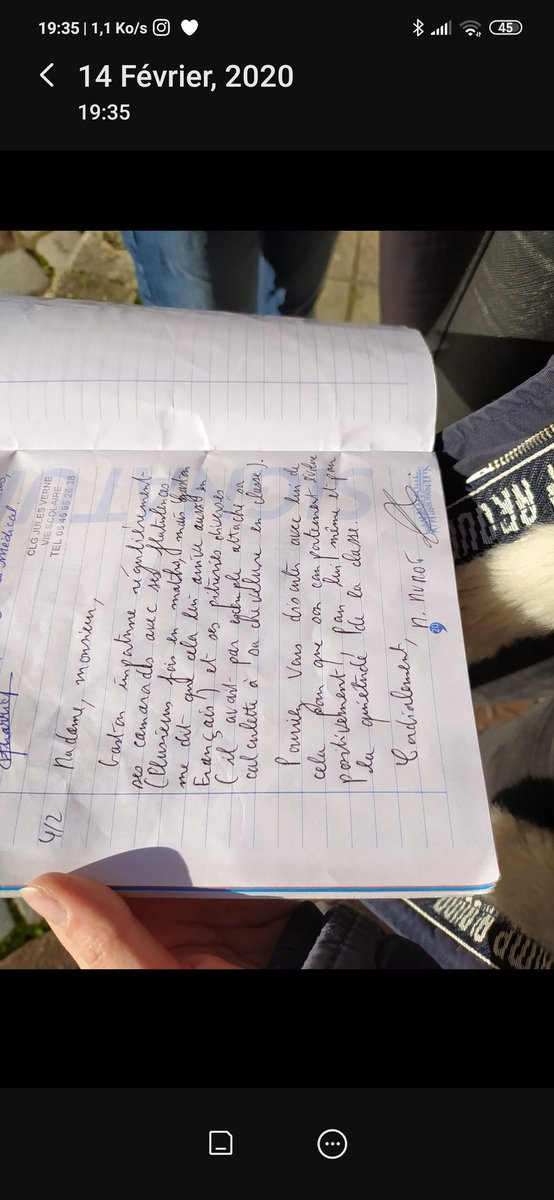 19:35 | 1,1 Ko/s
45
14 Février, 2020
19:35
médical
CLG JULES VERNE
VIE SCOLAIRE
TEL 05 45 95 20 38
4/2
Madame, monsieur,
Gaston importune régulièrement
ses camarades avec ses flatulences
(Plusieurs fois en maths, mais Gaston
me dit que cela lui arrive aussi en
Français) et ses pitreries diverses
(il avait par exemple attaché sa
calculette à sa chevelure en classe).
Pourriez vous discuter avec lui de
cela pour que son comportement évolue
positivement, pour lui même et pour
la quiétude de la classe.
Cordialement,
29